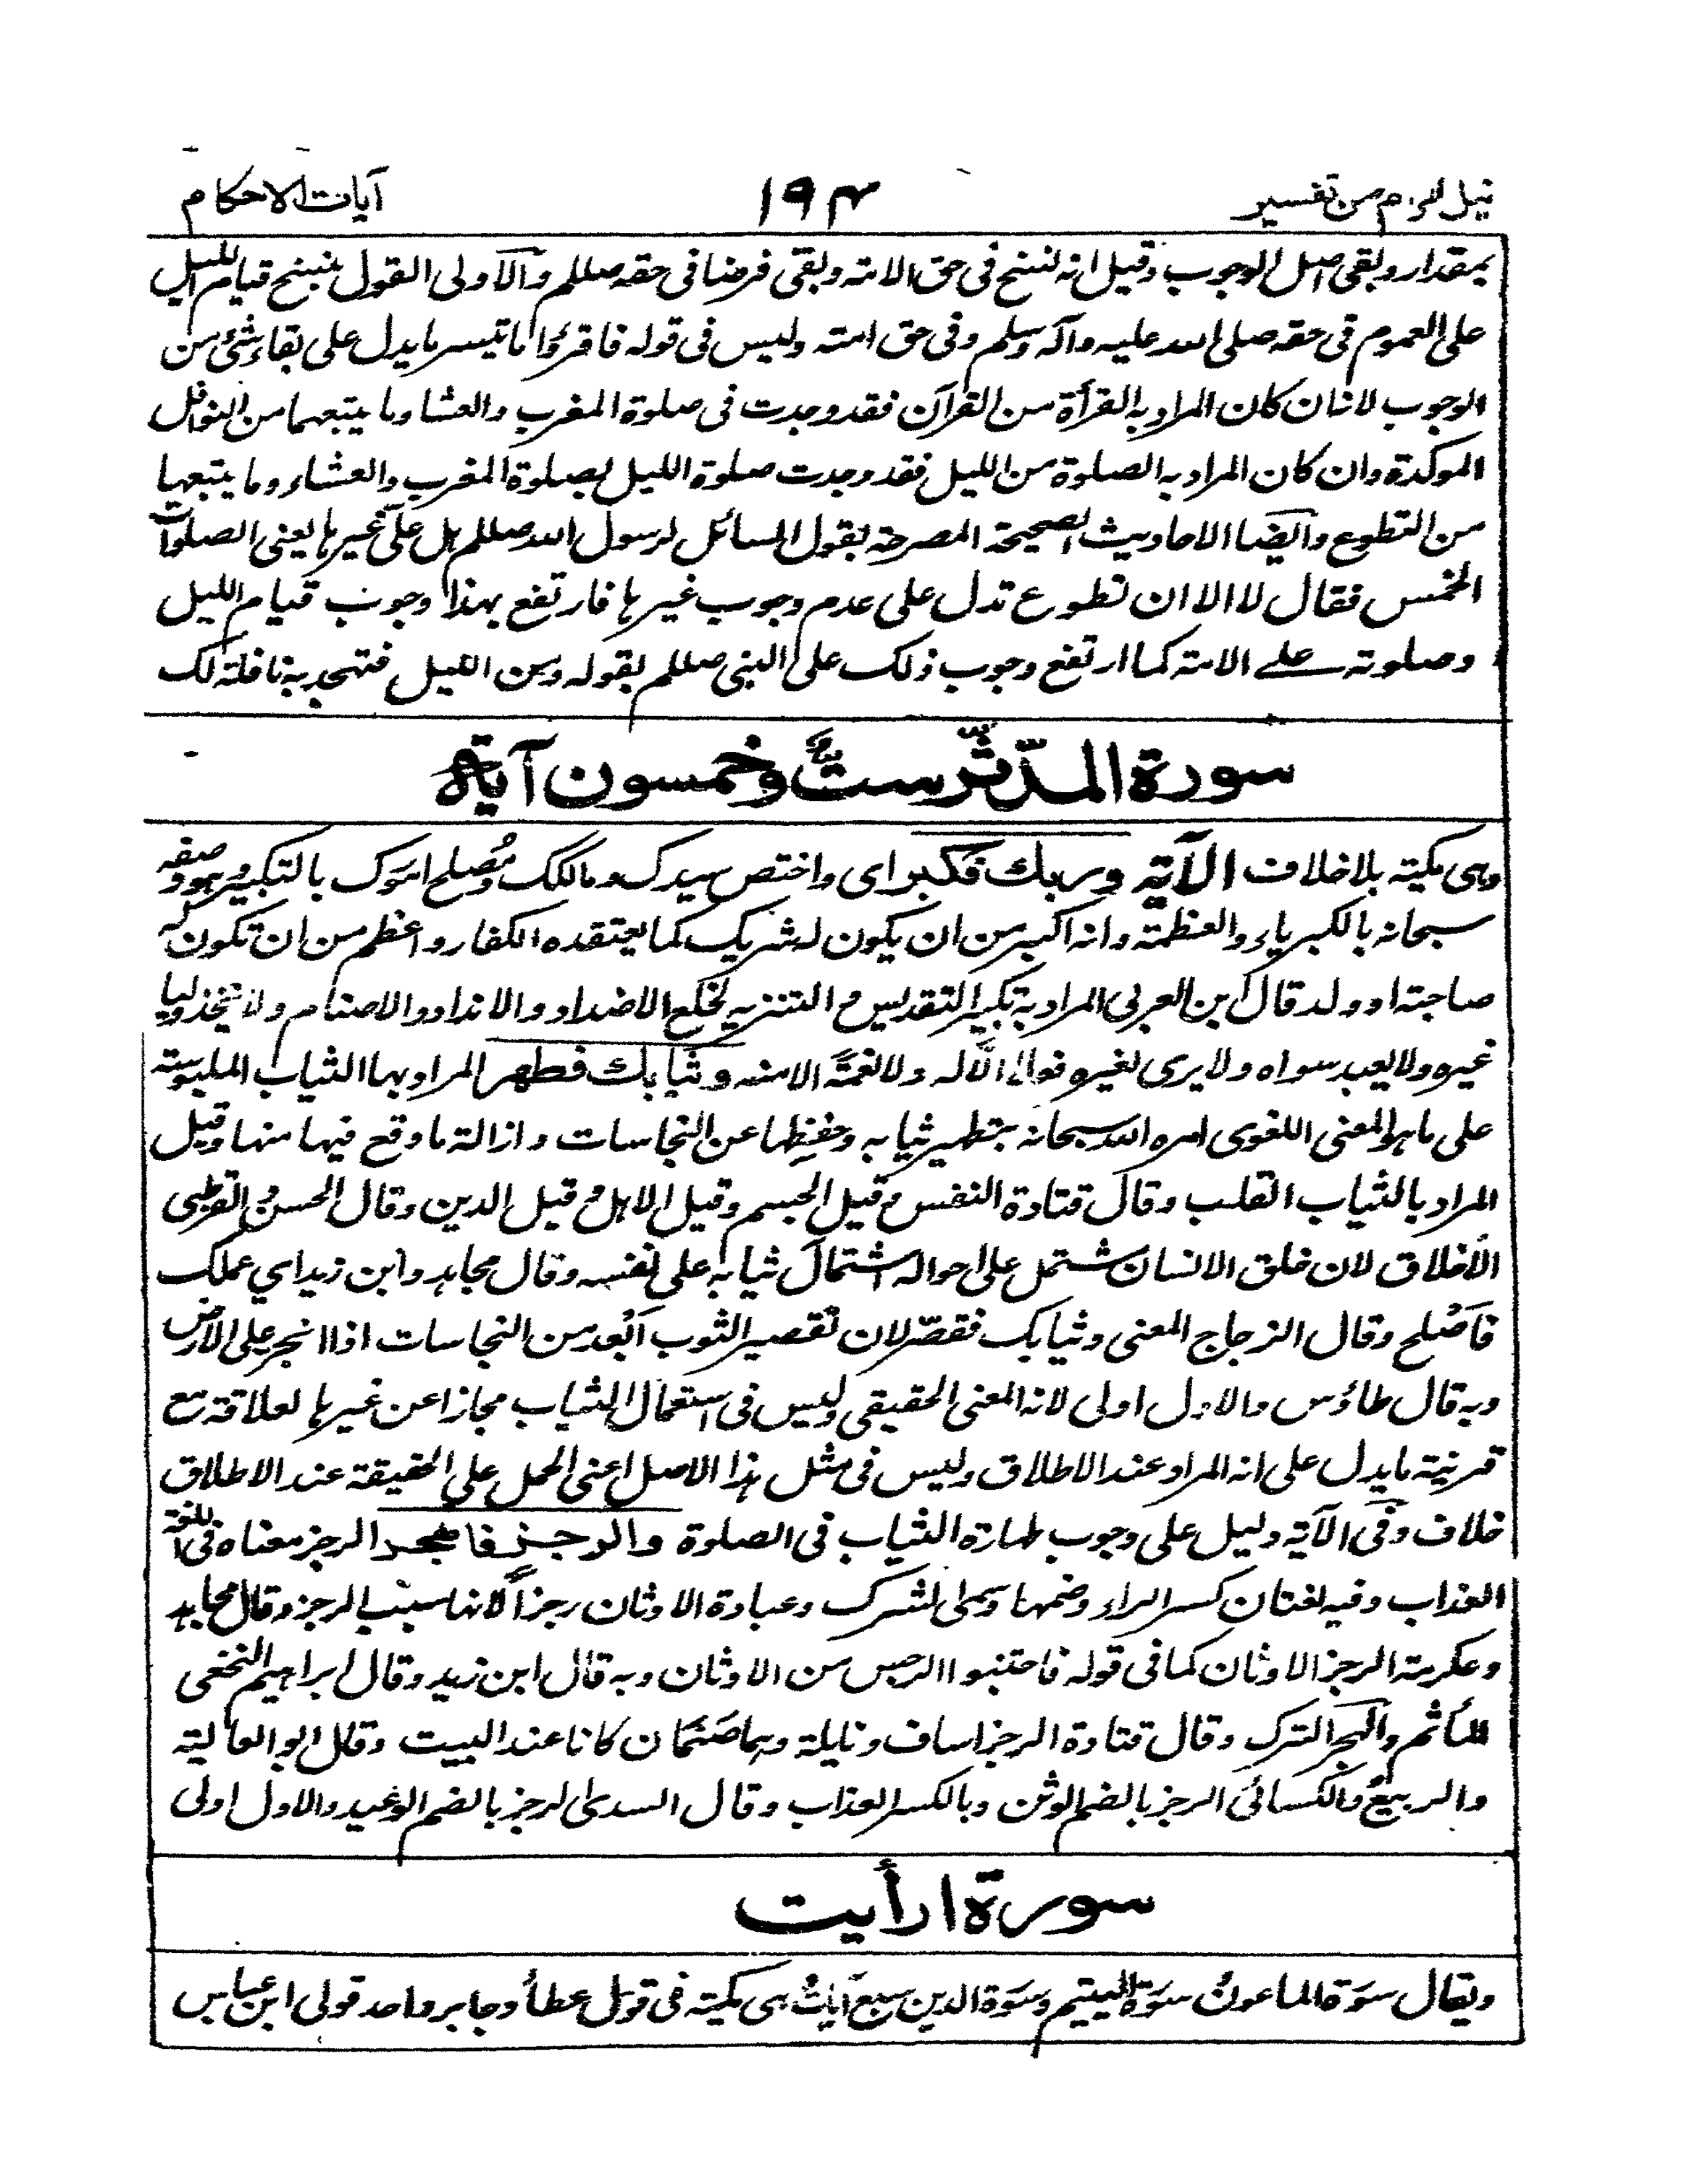 نيل المرام من تفسير ١٩٤ آيات الاحكام
بمقدار وبقى اصل الوجوب وقيل انه نسخ فى حق الامة وبقى فرضا فى حقه صللم والاولى القول بنسخ قيام الليل
على العموم فى حقه صلى الله عليه وآله وسلم وفى حق امته وليس فى قوله فاقرؤا ما تيسر ما يدل على بقاء شئ من
الوجوب لانه ان كان المراد به القرأة من القرآن فقد وجدت فى صلوة المغرب والعشا وما يتبعهما من النوافل
الموكدة وان كان المراد به الصلوة من الليل فقد وجدت صلوة الليل بصلوة المغرب والعشاء وما يتبعهما
من التطوع وايضا الاحاديث الصحيحة المصرحة بقول السائل لرسول الله صللم هل علىّ غيرها يعنى الصلوات
الخمس فقال لا الا ان تطوع تدل على عدم وجوب غيرها فارتفع بهذا وجوب قيام الليل
وصلوته على الامة كما ارتفع وجوب ذلك على النبى صللم بقوله ومن الليل فتهجد به نافلة لك
سورة المدّثّر ستٌّ وخمسون آية
وهى مكية بلا خلاف الآية وربك فكبر اى واختص سيدك ومالكك ومُصلح امورك بالتكبير وهو وصفه
سبحانه بالكبرياء والعظمة وانه اكبر من ان يكون له شريك كما يعتقده الكفار واعظم من ان تكون له
صاحبة او ولد قال ابن العربى المراد به تكبير التقديس والتنزيه لخلع الاضداد والانداد والاصنام ولا يتخذ وليا
غيره ولا يعبد سواه ولا يرى لغيره فعلا الا له ولا نعمة الا منه وثيابك فطهر المراد بها الثياب الملبوسة
على ما هو المعنى اللغوى امره الله سبحانه بتطهير ثيابه وحفظها عن النجاسات وازالة ما وقع فيها منها وقيل
المراد بالثياب القلب وقال قتادة النفس وقيل الجسم وقيل الاهل وقيل الدين وقال الحسن والقرظى
الأخلاق لان خلق الانسان مشتمل على احواله اشتمال ثيابه على نفسه وقال مجاهد وابن زيد اى عملك
فاَصْلح وقال الزجاج المعنى وثيابك فقصّر لان تقصير الثوب ابعد من النجاسات اذا انجر على الارض
وبه قال طاؤس والاول اولى لانه المعنى الحقيقى وليس فى استعمال الثياب مجازا عن غيرها لعلاقة مع
قرينة ما يدل على انه المراد عند الاطلاق وليس فى مثل هذا الاصل اعنى الحمل على الحقيقة عند الاطلاق
خلاف وفى الآية دليل على وجوب طهارة الثياب فى الصلوة والرجز فاهجر الرجز معناه فى اللغة
العذاب وفيه لغتان كسر الراء وضمها وسمى الشرك وعبادة الاوثان رجزاً لانها سبب الرجز وقال مجاهد
وعكرمة الرجز الاوثان كما فى قوله فاجتنبوا الرجس من الاوثان وبه قال ابن زيد وقال ابراهيم النخعى
المأثم والهجر الترك وقال قتادة الرجز اساف ونايلة وهما صَنَمان كانا عند البيت وقال ابو العالية
والربيع والكسائى الرجز بالضم الوثن وبالكسر العذاب وقال السدى الرجز بالضم الوعيد والاول اولى
سورة ارأيت
ويقال سورة الماعون وسورة اليتيم وسورة الدين سبع آيات هى مكية فى قول عطاء وجابر واحد قولى ابن عباس